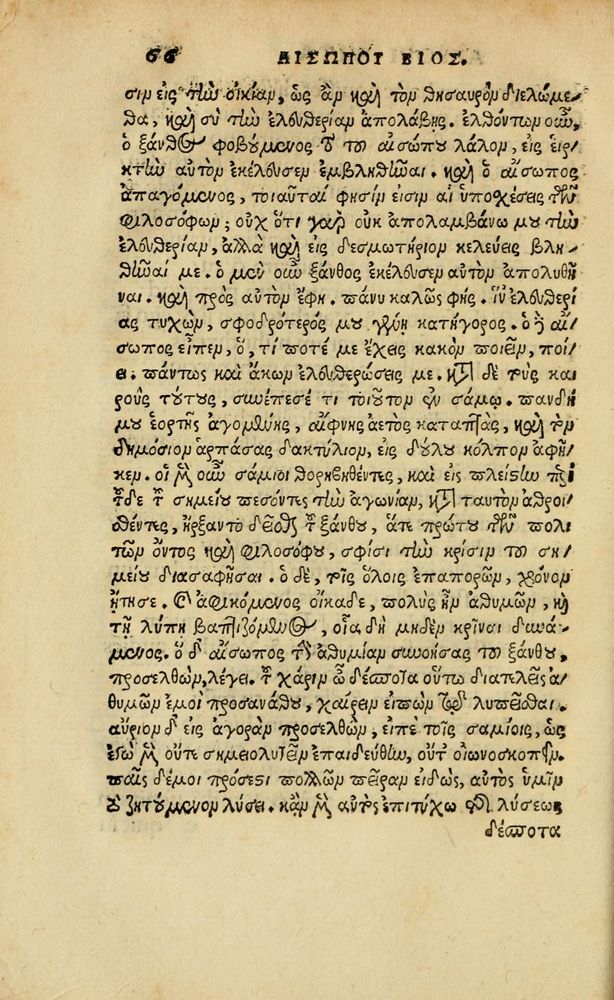 66 ΑΙΣΩΠΟΥ ΒΙΟΣ.
σιν εἰς τὴν οἰκίαν, ὡς ἂν καὶ τὸν θησαυρὸν διελώμε-
θα, καὶ σὺ τὴν ἐλευθερίαν ἀπολάβῃς. ἐλθόντων οὖν,
ὁ ξάνθος φοβούμενος τὸ τοῦ αἰσώπου λάλον, εἰς εἱρ-
κτὴν αὐτὸν ἐκέλευσεν ἐμβληθῆναι. καὶ ὁ αἴσωπος
ἀπαγόμενος, τοιαῦταί φησιν εἰσὶν αἱ ὑποσχέσεις τῶν
φιλοσόφων; οὐχ ὅτι γὰρ οὐκ ἀπολαμβάνω μου τὴν
ἐλευθερίαν, ἀλλὰ καὶ εἰς δεσμωτήριον κελεύεις βλη-
θῆναί με. ὁ μὲν οὖν ξάνθος ἐκέλευσεν αὐτὸν ἀπολυθῆ
ναι. καὶ πρὸς αὐτὸν ἔφη. πάνυ καλῶς φῄς. ἵν' ἐλευθερί
ας τυχὼν, σφοδρότερός μου γένῃ κατήγορος. ὁ δ' αἴ-
σωπος εἶπεν, ὅ, τί ποτέ με ἔχεις κακὸν ποιεῖν, ποί-
ει. πάντως καὶ ἄκων ἐλευθερώσεις με. κατὰ δὲ τοὺς και
ροὺς τούτους, συνέπεσέ τι τοιοῦτον ἐν σάμῳ. πανδή
μου ἑορτῆς ἀγομένης, αἴφνης ἀετὸς καταπτὰς, καὶ τὸν
δημόσιον ἁρπάσας δακτύλιον, εἰς δούλου κόλπον ἀφῆ
κεν. οἱ μὲν οὖν σάμιοι θορυβηθέντες, καὶ εἰς πλείστην περὶ
τοῦδε τοῦ σημείου πεσόντες τὴν ἀγωνίαν, κατὰ ταυτὸν ἀθροι-
σθέντες, ἤρξαντο δεῖσθαι τοῦ ξάνθου, ἅτε πρώτου τῶν πολι
τῶν ὄντος καὶ φιλοσόφου, σφίσι τὴν κρίσιν τοῦ ση-
μείου διασαφῆσαι. ὁ δὲ, τοῖς ὅλοις ἐπαπορῶν, χρόνον
ᾔτησε. καὶ ἀφικόμενος οἴκαδε, πολὺς ἦν ἀθυμῶν, καὶ
τῇ λύπῃ βαπτιζόμενος, οἷα δὴ μηδὲν κρῖναι δυνά-
μενος. ὁ δ' αἴσωπος τὴν ἀθυμίαν συνοήσας τοῦ ξάνθου,
προσελθὼν, λέγει. τοῦ χάριν ὦ δέσποτα οὕτω διατελεῖς ἀ-
θυμῶν ἐμοὶ προσανάθου, χαίρειν εἰπὼν τῷ λυπεῖσθαι.
αὔριον δ' εἰς ἀγορὰν προσελθὼν, εἰπὲ τοῖς σαμίοις, ὡς
ἐγὼ μὲν οὔτε σημειολυτεῖν ἐπαιδεύθην, οὔτ' οἰωνοσκοπεῖν.
παῖς δέ μοι πρόσεστι πολλῶν πεῖραν εἰδὼς, αὐτὸς ὑμῖν
τὸ ζητούμενον λύσει. κἂν μὲν αὐτὸς ἐπιτύχω τῆς λύσεως
δέσποτα